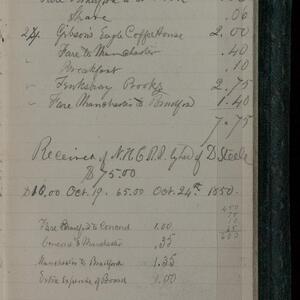 Fare Bradford to
Share .06
24 Gibson's Eagle Coffee House 2.00
" Fare to Manchester .40
" Breakfast .10
" Books 2.75
" Fare Manchester to Bradford 1.40
7.75
Received of N.H.C.R.R. by of D Steele
$75.00
$10.00 Oct. 19. 65.00 Oct. 24th 1850.
Fare Bradford to Concord 1.00
Concord to Manchester .35
Manchester to Bradford 1.35
Extra Expense of Board 1.00